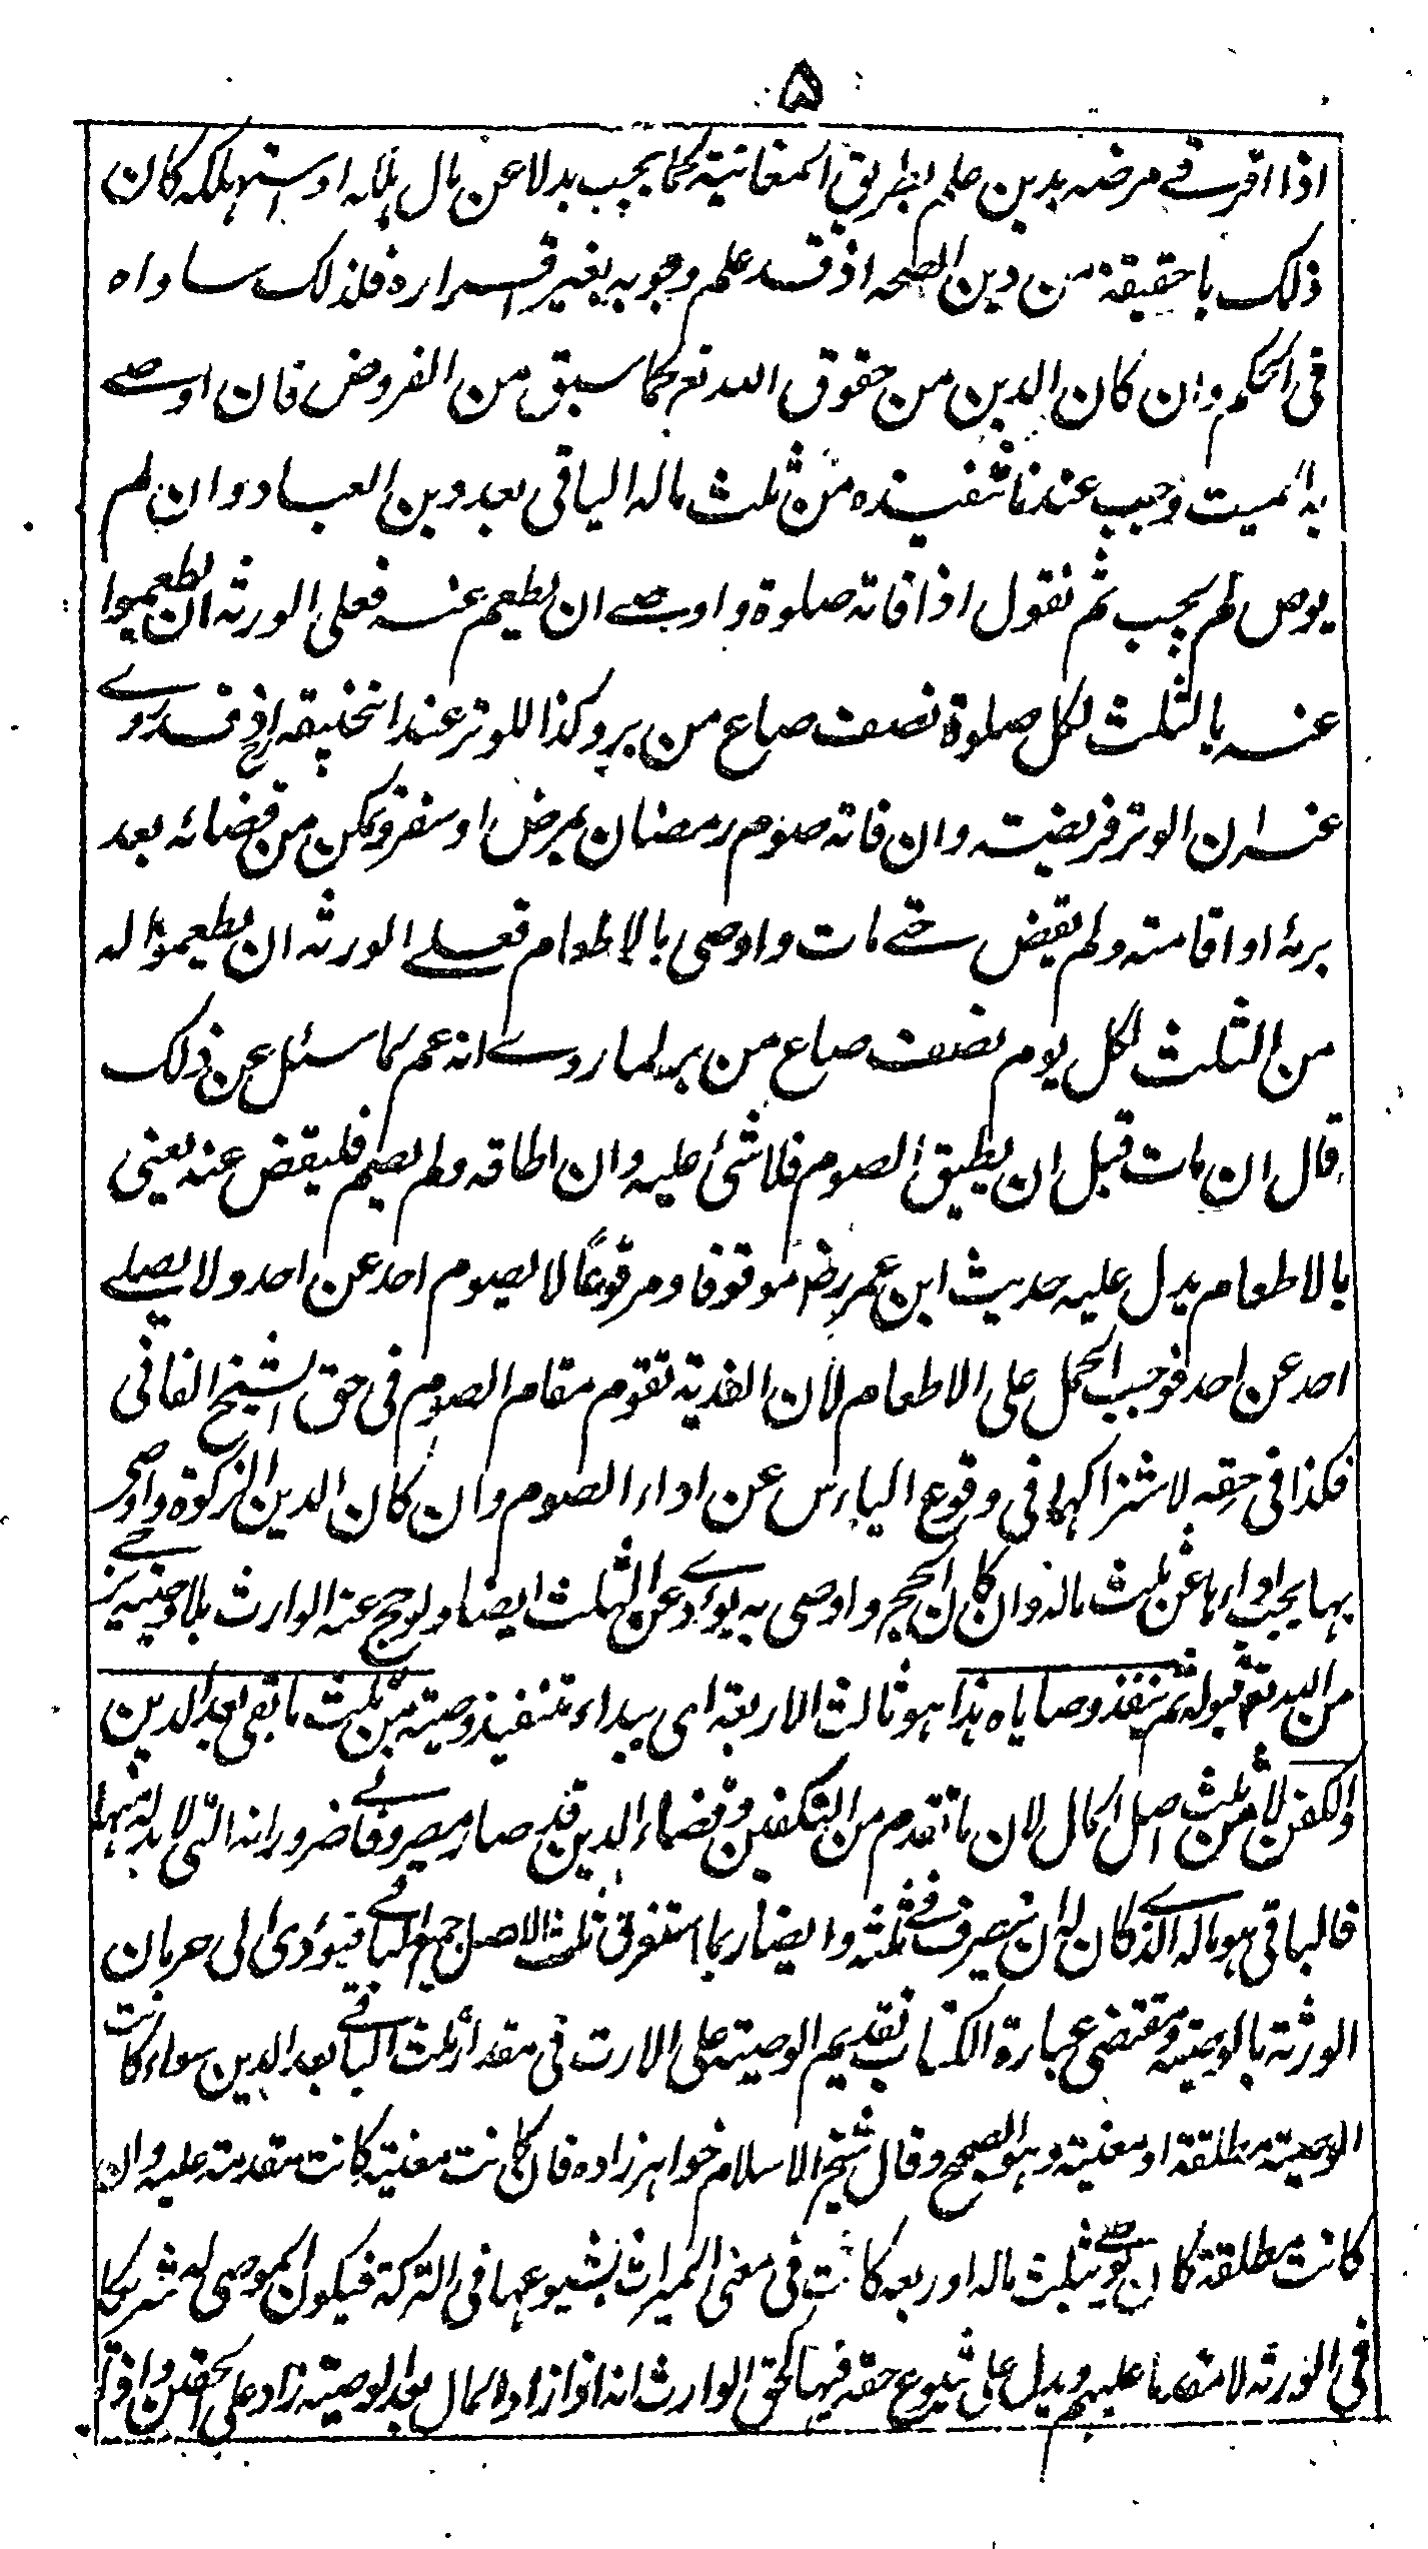 ۵
اذا اقر فے مرضہ بدین علم بطریق المعاینۃ کما یجب بدلا عن مال ملکہ او استہلکہ کان
ذلک باحقیقۃ من دین الصحہ اذ قد علم وجوبہ بغیر اقرارہ فلذلک ساواہ
فی الحکم وان کان الدین من حقوق اللہ تعر کما سبق من الفروض فان اوصے
بہ المیت وجب عندنا تنفیذہ من ثلث مالہ الباقی بعد دین العباد وان لم
یوص لم یجب ثم نقول اذا فاتہ صلوۃ واوصے ان یطعم عنہ فعلی الورثہ ان یطعموا
عنہ بالثلث لکل صلوۃ نصف صاع من بر وکذا للوتر عند ابیحنیفہ رح اذ قد روے
عنہ ان الوتر فریضتہ وان فاتہ صوم رمضان بمرض او سفر وتمکن من قضائہ بعد
برئہ او اقامتہ ولم یقض حتے مات واوصی بالاطعام فعلے الورثہ ان یطعموا لہ
من الثلث لکل یوم نصف صاع من بر لما روے انہ عم لما سئل عن ذلک
قال ان مات قبل ان یطیق الصوم فلا شئ علیہ وان اطاقہ ولم یصم فلیقض عنہ یعنی
بالاطعام یدل علیہ حدیث ابن عمر رض موقوفا ومرفوعًا لا یصوم احد عن احد ولا یصلے
احد عن احد فوجب الحمل علی الاطعام لان الفدیۃ تقوم مقام الصوم فی حق الشیخ الفانی
فکذا فی حقہ لاشتراکہما فی وقوع الیاس عن اداء الصوم وان کان الدین الزکوۃ واوصے
بہا یجب اداءہا عن ثلث مالہ وان کان الحج واوصی بہ یؤدے عن الثلث ایضا ولو حج عنہ الوارث بلا وصیتہ یرجے
من اللہ تعر قبولہ ثم ینفذ وصایاہ ہذا ہو ثالث الاربعۃ ای یبداء بتنفیذ وصیتہ من ثلث ما بقی بعد الدین
والکفن لا من ثلث اصل المال لان ما تقدم من التکفین وقضاء الدین قد صار مصروفا فے ضروراتہ التی لا بد لہ منہا
فالباقی ہو مالہ الذے کان لہ ان یتصرف فے ثلثہ وایضا ربما استغرق ثلث الاصل جمیع الباقے فیؤدی الی حرمان
الورثۃ بالوصیتہ ومقتضی عبارۃ الکتاب تقدیم الوصیتہ علی الارث فی مقدار ثلث الباقے بعد الدین سواء کانت
الوصیتہ مطلقۃ او معینۃ وہو الصحیح وقال شیخ الاسلام خواہر زادہ فان کانت معینۃ کانت مقدمۃ علیہ وان
کانت مطلقۃ کان یوصے بثلث مالہ او ربعہ کانت فی معنی المیراث لشیوعہا فی الترکۃ فیکون الموصی لہ شریکا
فی الورثہ لا مقدما علیہم ویدل علی شیوع حقہ فیہا کحق الوارث انہ اذا زاد المال بعد الوصیتہ زاد علی الحقین واذا